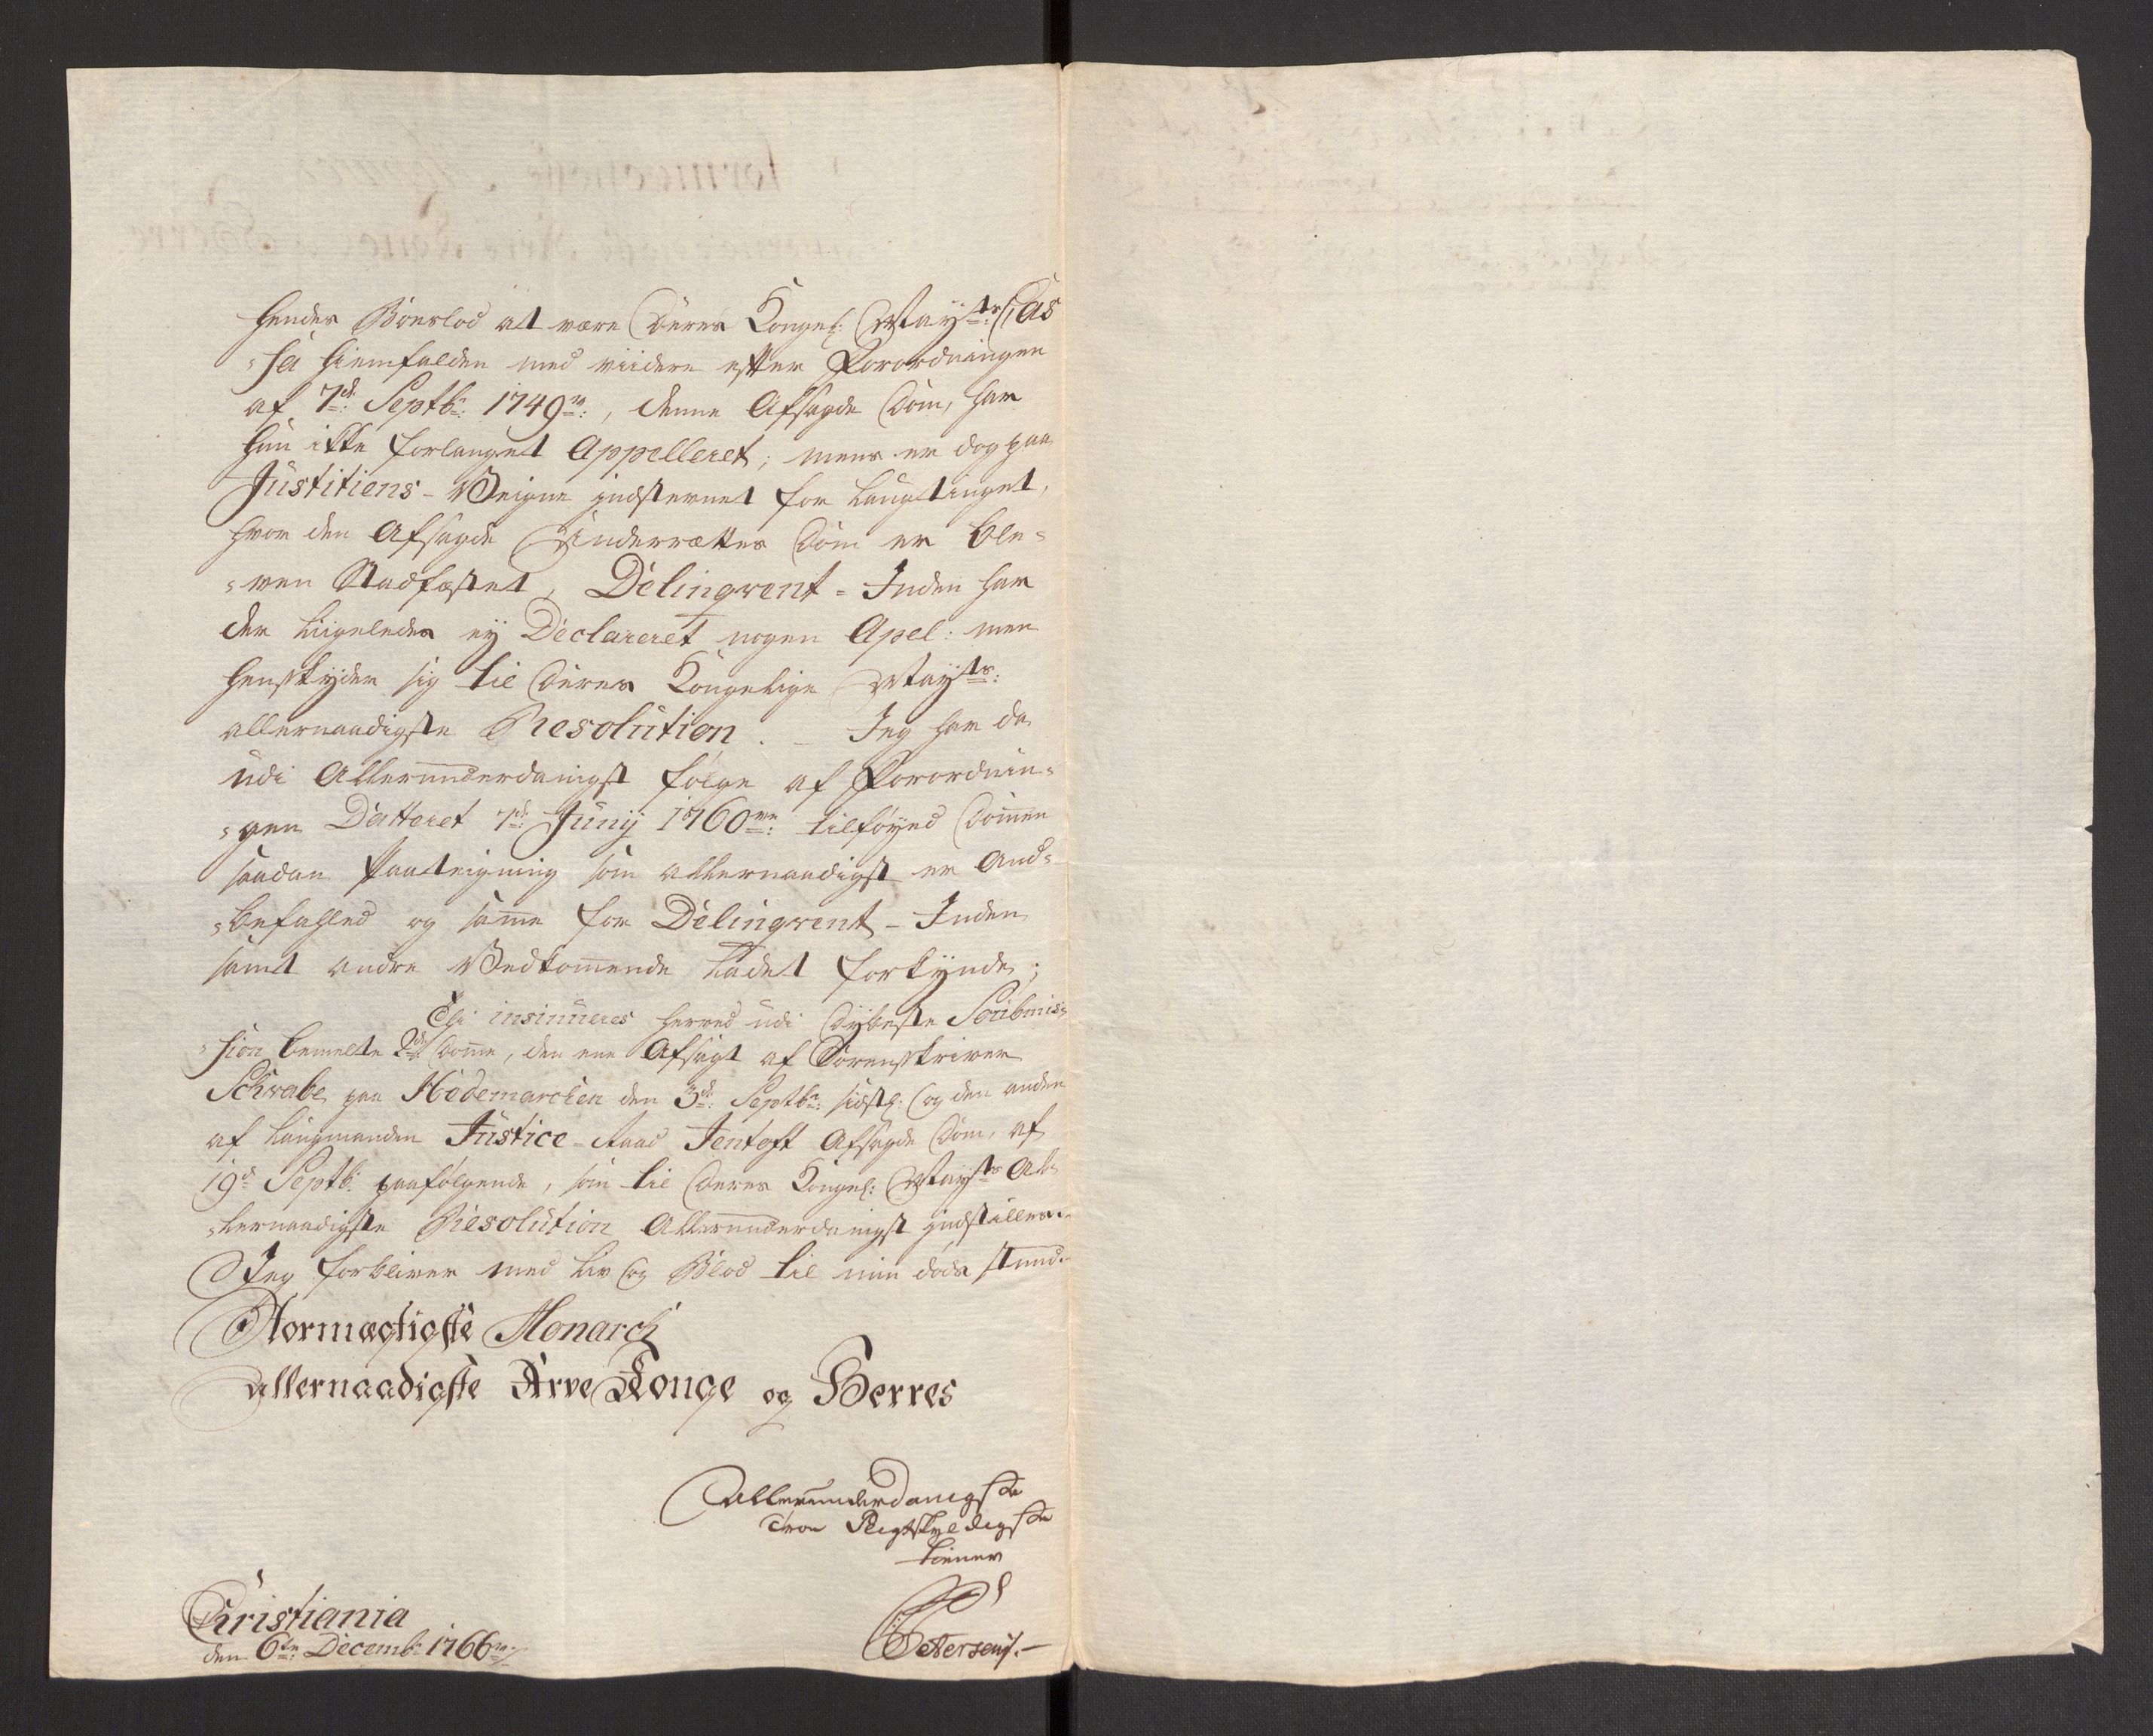 hendes Boeslod at være Deres Kongel: Mayts: Cas
=sa hiemfalden med viidere efter Forordningen
af 7de: Septbr: 1749ve:, denne Afsagde Dom, har
hun ikke forlanget Appelleret; mens er dog paa
Justitiens-Veigne indstevnet for Laugtinget,
hvor den Afsagde Underrættes Dom er ble=
=ven Stadfæstet, Delinqvent=Inden har
der liigeledes ey Declareret nogen Apel: men
henskyder sig til Deres Kongelige Mayts:
allernaadigste Resolution. – Jeg har da
udi Allerunderdanigst følge af Forordnin=
=gen Datteret 7de: Junij 1760ve: tilføyed Dommen
saadan Paateigning som allernaadigst er And=
=befahled og samme for Delinqvent-Inden
samt andre Vedkommende ladet forkynde;
Thi insinueres herved udi dybeste Soubmis=
=sion bemelte 2de Domme, den ene Afsagt af Sorenskriver
Schwabe paa Hedemarchen den 3de: Septbr: sidstl: og den anden
af Laugmanden Justice-Raad Jentoft Afsagde Dom, af
19de Septbr: paafølgende, som til Deres Kongel: Mayts Al=
=lernaadigste Resolution Allerunderdanigst indstilles.
Jeg forbliver med Liv og Blod til min døds stund.
Stormægtigste Monarch
Allernaadigste Arve Konge og Herres
Allerunderdanigste
Troe Pligtskyldigste
tiener
Petersen.
Christiania
den 6te: Decembr: 1766